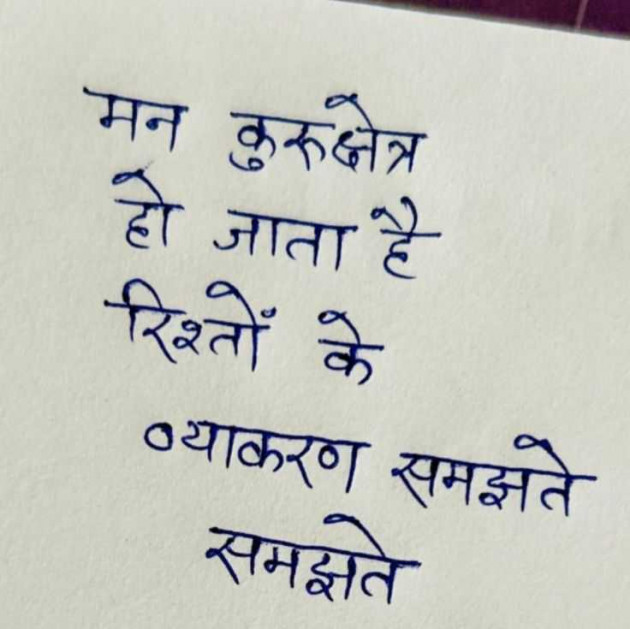 मन कुरुक्षेत्र
हो जाता है
रिश्तों के
व्याकरण समझते
समझते